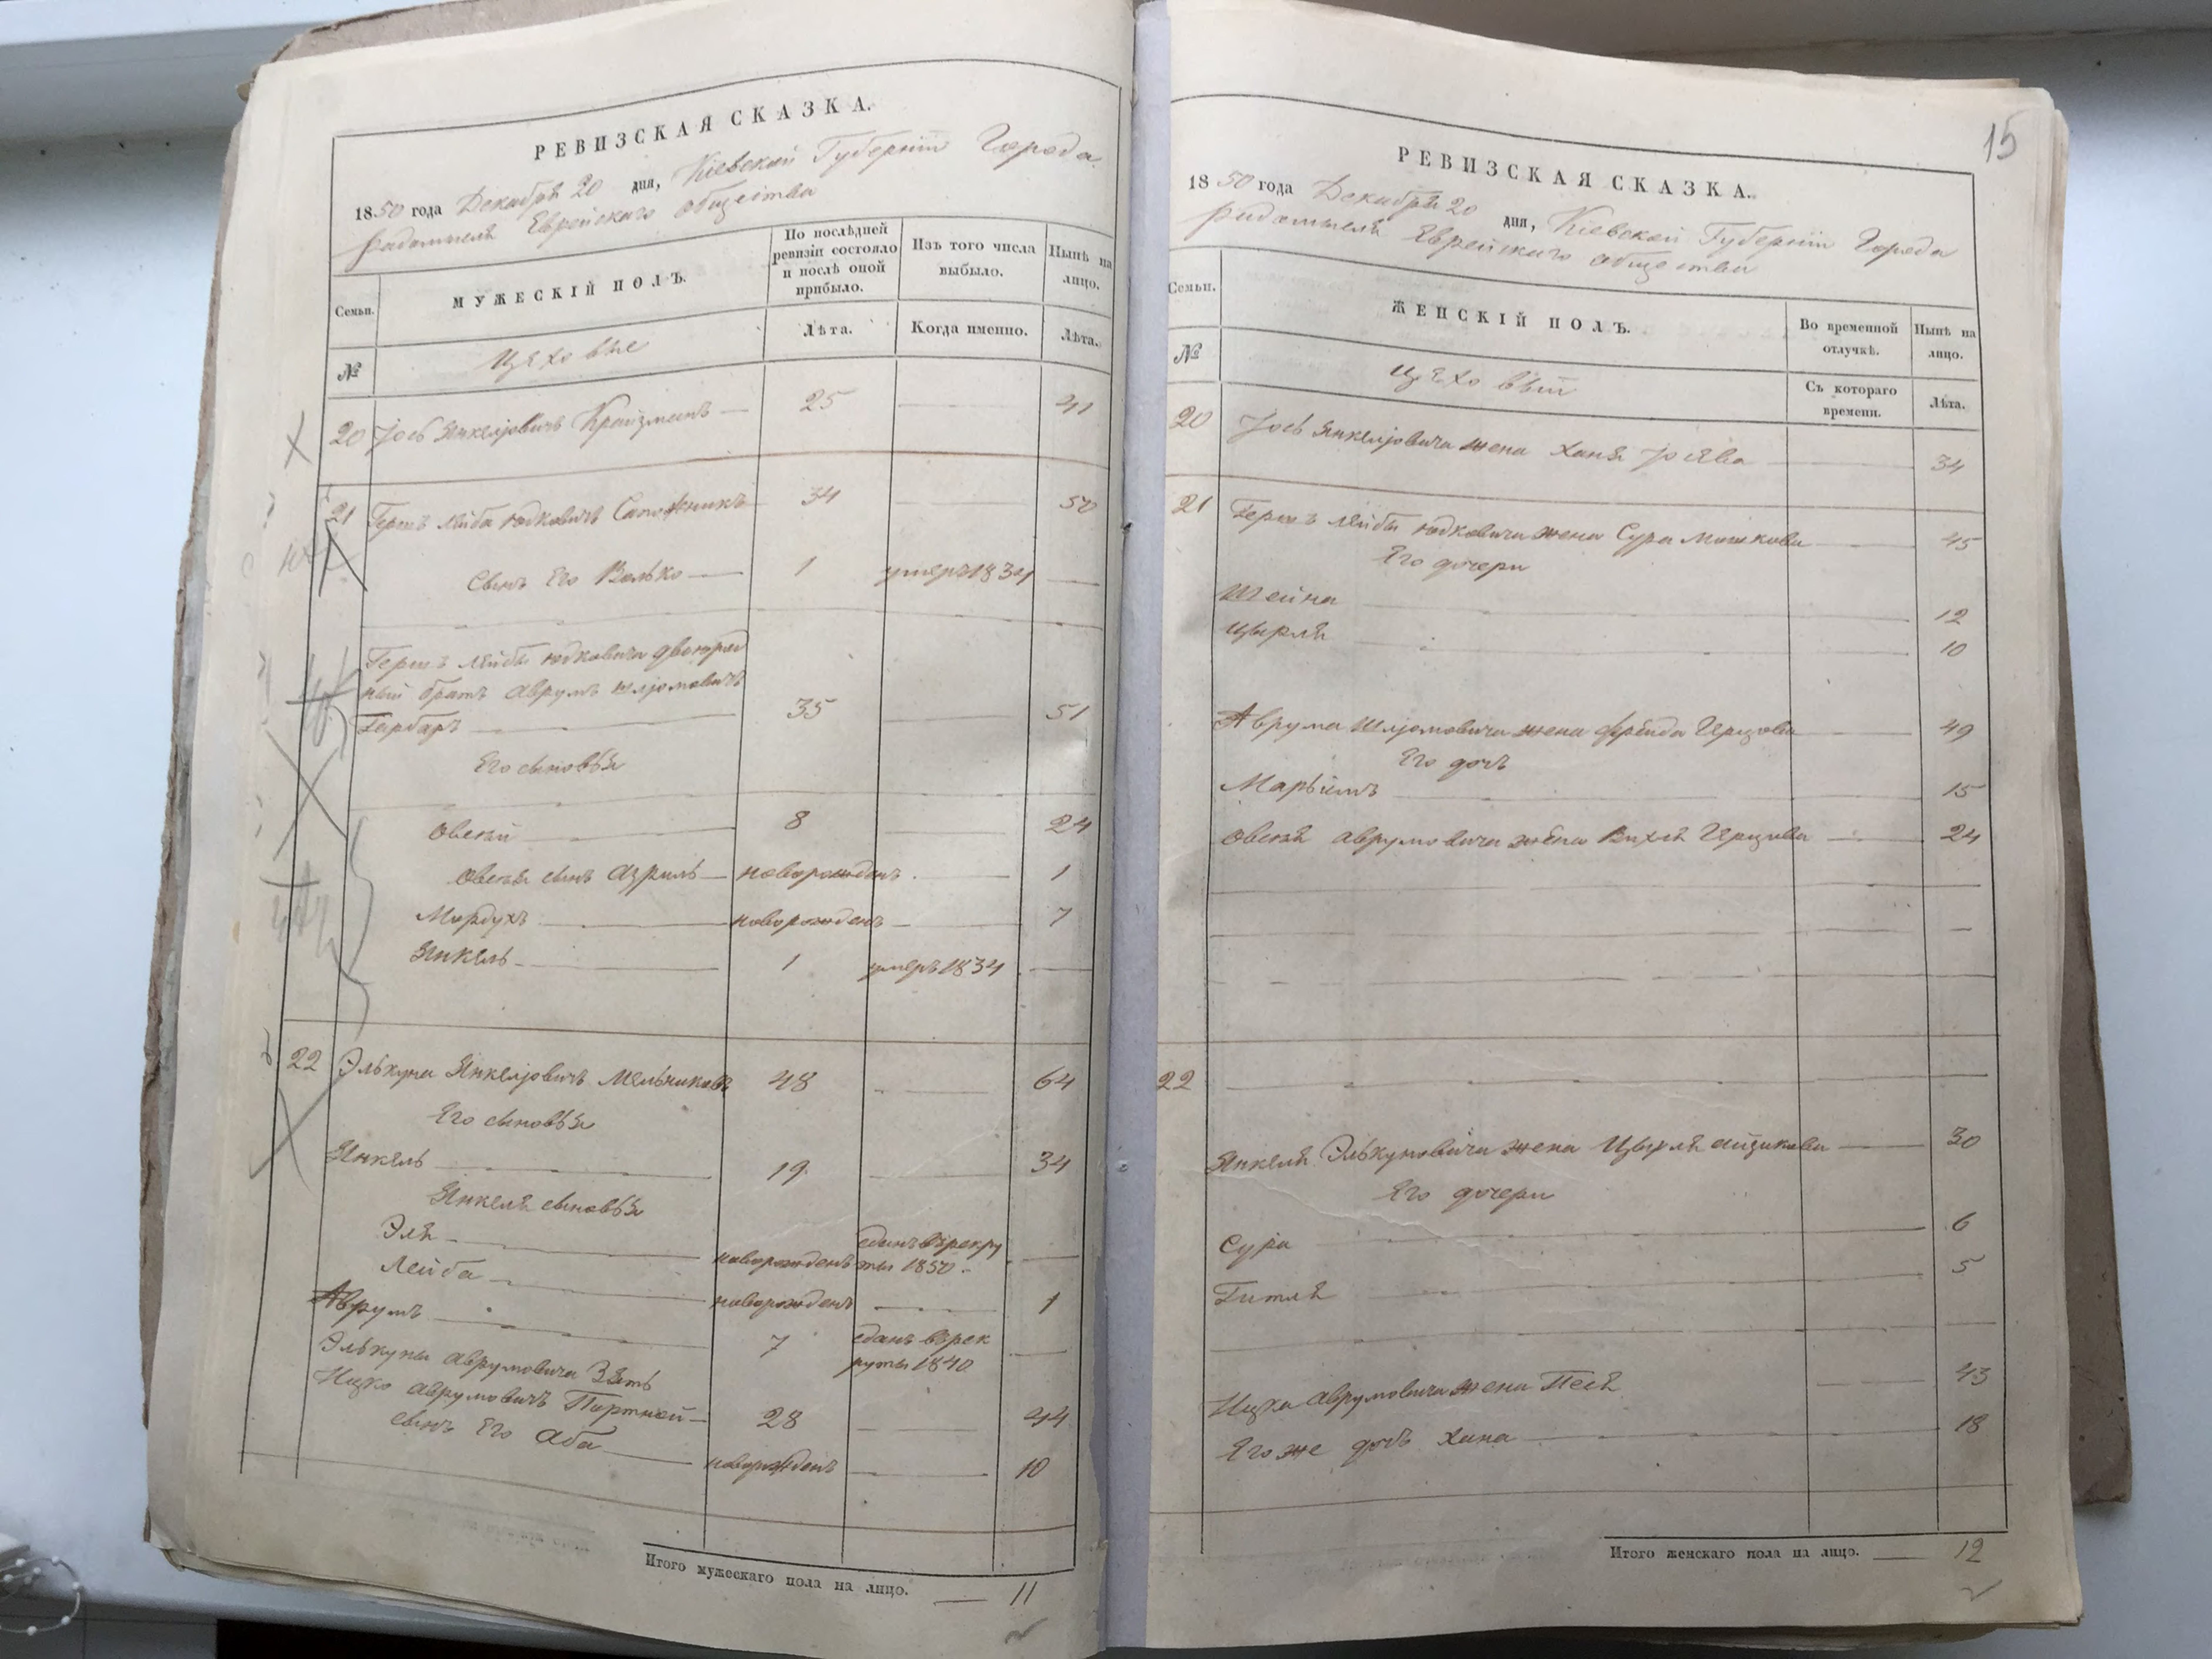 РЕВИЗСКАЯ СКАЗКА.
1850 года Декабря 20 дня, Кіевской Губерніи Города
Радомысля Еврейскаго общества
Семьи.
МУЖЕСКІЙ ПОЛЪ.
По послѣдней
ревизіи состояло
и послѣ оной
прибыло.
Изъ того числа
выбыло.
Нынѣ на
лицо.
№
Цеховые
Лѣта.
Когда именно.
Лѣта.
20 Іось Янкеліовичъ Крайзманъ 25 41
21 Гершъ Лейба Юдковичъ Сапожникъ 34 50
Сынъ Его Волько 1 умеръ 1834
Гершъ Лейбы Юдковича двоюрод
ный братъ Аврумъ Шліомовичъ
Гарбаръ 35 51
Его сыновья
Овсей 8 24
Овсея сынъ Азриль новорожденъ 1
Мордухъ новорожденъ 7
Янкель 1 умеръ 1834
22 Элькуна Янкеліовичъ Мельниковъ 48 64
Его сыновья
Янкель 19 34
Янкеля сыновья
Эля новорожденъ сданъ врекру
ты 1850.
Лейба новорожденъ 1
Аврумъ 7 сданъ врек
руты 1840
Элькуны Аврумовича Зять
Ицко Аврумовичъ Портной 28 44
сынъ Его Аба новорожденъ 10
Итого мужескаго пола на лицо. 11
15
РЕВИЗСКАЯ СКАЗКА.
1850 года Декабря 20 дня, Кіевской Губерніи Города
Радомысля Еврейскаго общества
Семьи.
ЖЕНСКІЙ ПОЛЪ.
Во временной
отлучкѣ.
Нынѣ на
лицо.
№
Съ котораго
времени.
Лѣта.
20 Іось Янкеліовича жена Ханя 34
21 Гершъ Лейбы Юдковича жена Сура Мошкова 45
Его дочери
Шейна 12
Цырля 10
Аврума Шліомовича жена Фрейда Герцова 49
Его дочь
Марьямъ 15
Овсея Аврумовича жена Рихля Герцова 24
22
Янкеля Элькуновича жена Цырля Айзикова 30
Его дочери
Сура 6
Гитля 5
Ицка Аврумовича жена Песя 43
Его же дочь Хана 18
Итого женскаго пола на лицо. 12